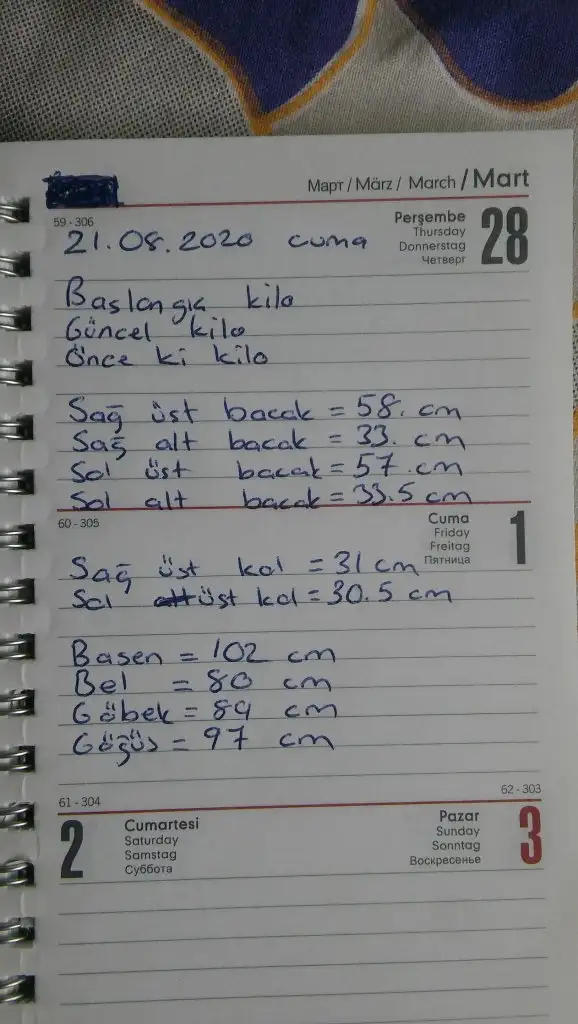 Март / März / March / Mart
59 - 306
Perşembe
Thursday
Donnerstag
Четверг
28
21.08.2020 cuma
Baslangıc kilo
Güncel kilo
Önce ki kilo
Sağ üst bacak = 58. cm
Sağ alt bacak = 33. cm
Sol üst bacak = 57. cm
Sol alt bacak = 33.5 cm
60 - 305
Cuma
Friday
Freitag
Пятница
1
Sağ üst kol = 31 cm
Sol üst kol = 30.5 cm
Basen = 102 cm
Bel = 80 cm
Göbek = 89 cm
Göğüs = 97 cm
61 - 304
2
Cumartesi
Saturday
Samstag
Суббота
62 - 303
Pazar
Sunday
Sonntag
Воскресенье
3